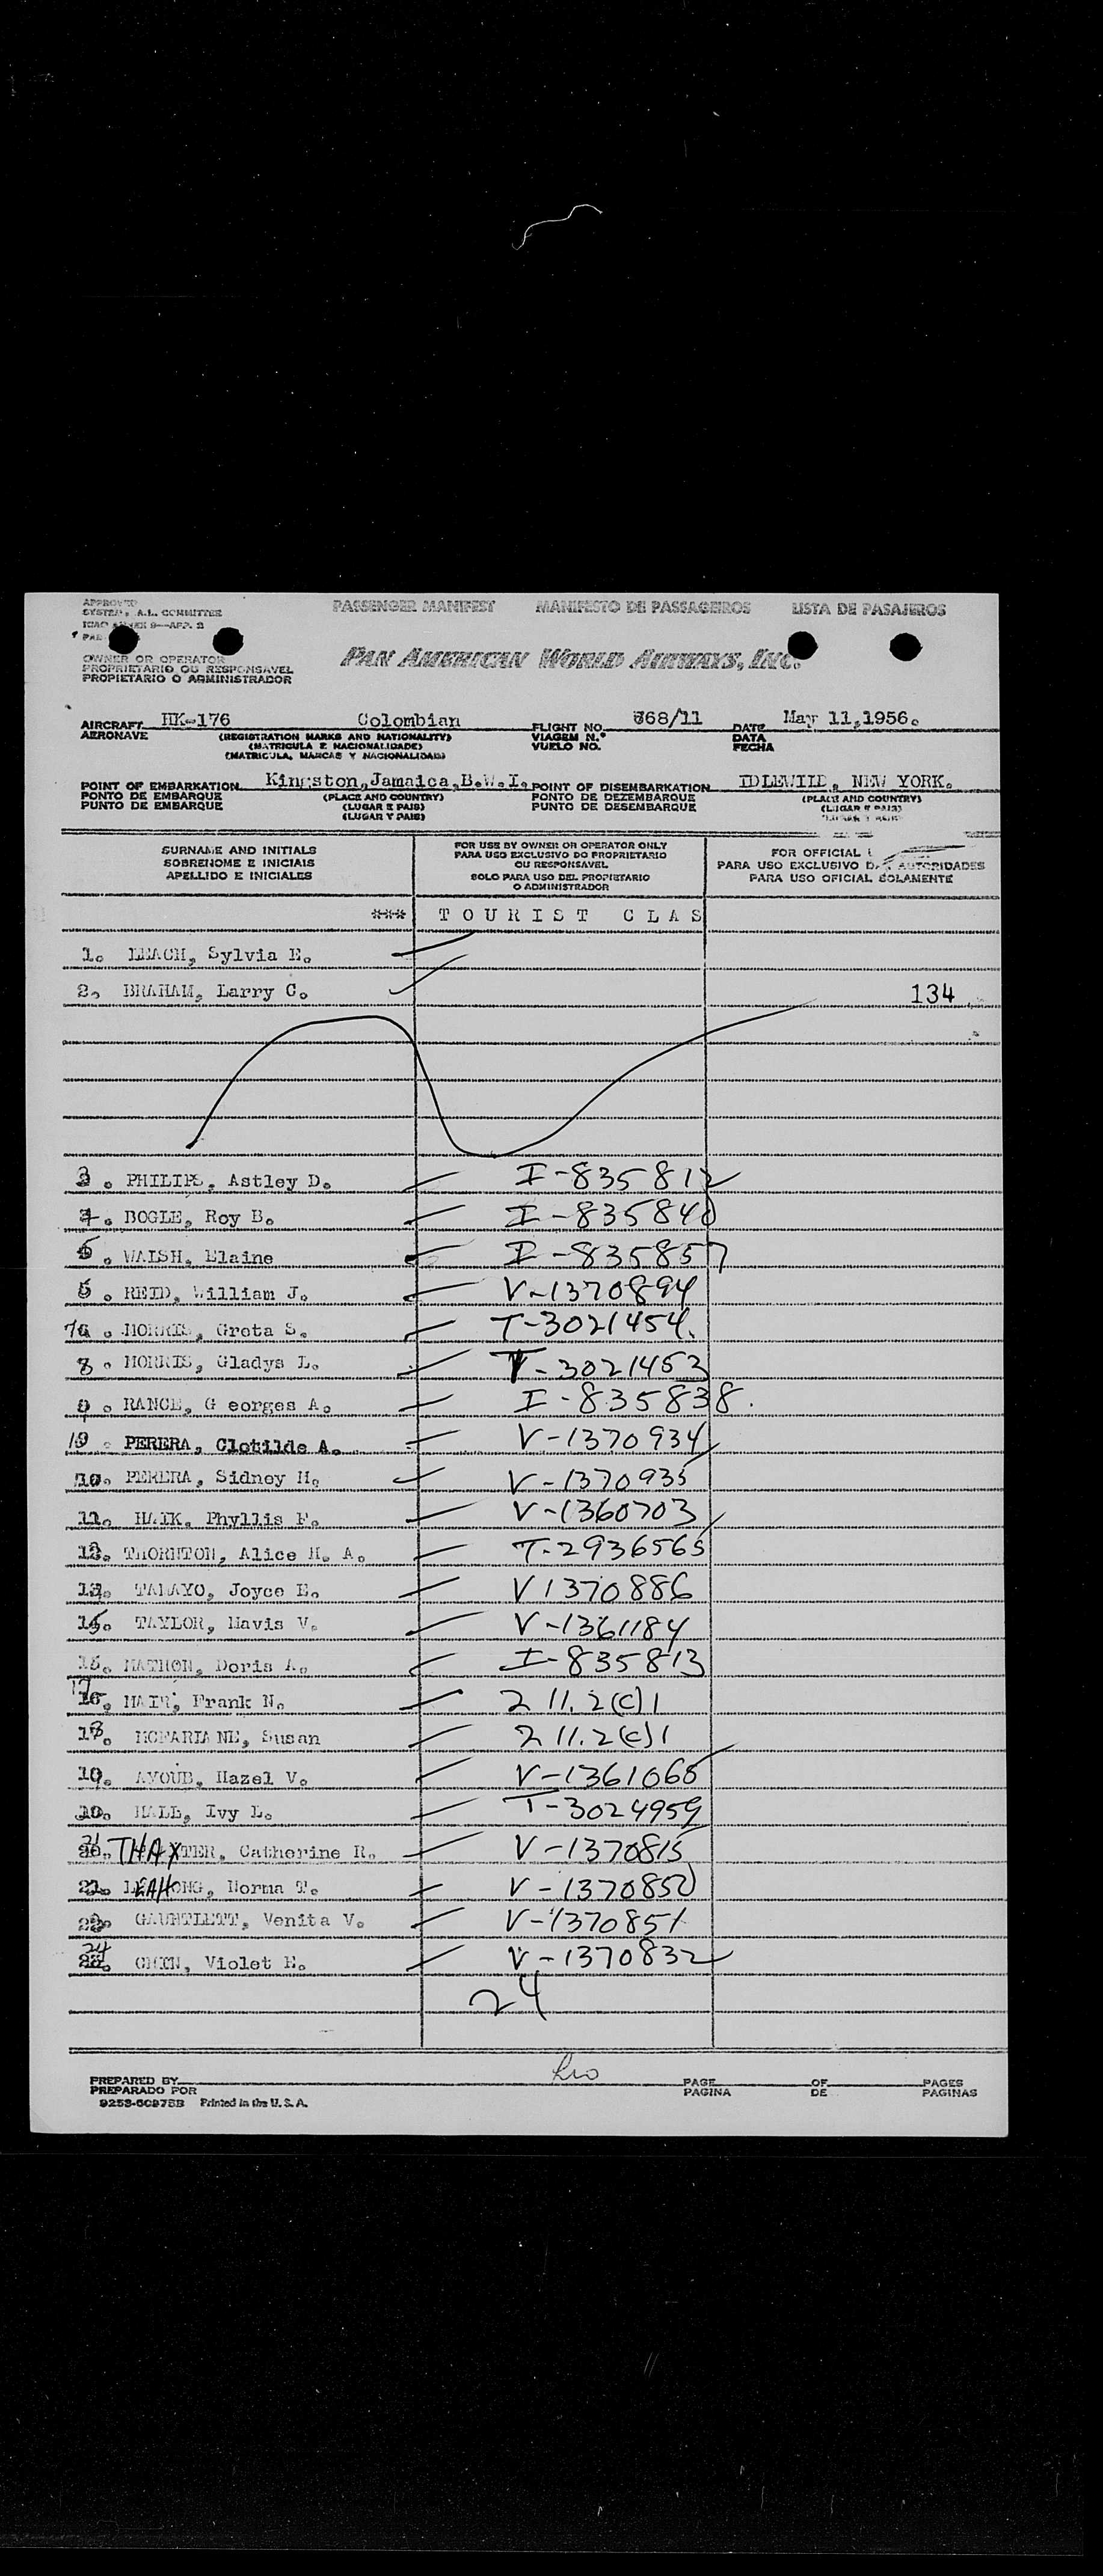 APPROVED
SYSTEM, A.L. COMMITTEE
ICAO ANNEX 9—APP. 2
PASSENGER MANIFEST MANIFESTO DE PASSAGEIROS LISTA DE PASAJEROS
OWNER OR OPERATOR
PROPRIETARIO OU RESPONSAVEL
PROPIETARIO O ADMINISTRADOR
PAN AMERICAN WORLD AIRWAYS, INC.
AIRCRAFT HK-176 Colombian FLIGHT NO. 368/11 DATE May 11,1956.
AERONAVE (REGISTRATION MARKS AND NATIONALITY) VIAGEM N.º DATA
(MATRICULA E NACIONALIDADE) VUELO NO. FECHA
(MATRICULA, MARCAS Y NACIONALIDAD)
POINT OF EMBARKATION Kingston,Jamaica,B.W.I. POINT OF DISEMBARKATION IDLEWILD, NEW YORK.
PONTO DE EMBARQUE (PLACE AND COUNTRY) PONTO DE DEZEMBARQUE (PLACE AND COUNTRY)
PUNTO DE EMBARQUE (LUGAR E PAIS) PUNTO DE DESEMBARQUE (LUGAR E PAIS)
(LUGAR Y PAIS)
SURNAME AND INITIALS
SOBRENOME E INICIAIS
APELLIDO E INICIALES
FOR USE BY OWNER OR OPERATOR ONLY
PARA USO EXCLUSIVO DO PROPRIETARIO
OU RESPONSAVEL
SOLO PARA USO DEL PROPIETARIO
O ADMINISTRADOR
FOR OFFICIAL
PARA USO EXCLUSIVO DAS AUTORIDADES
PARA USO OFICIAL SOLAMENTE
*** TOURIST CLAS
1. LEACH, Sylvia E.
2. BRAHAM, Larry C. 134
3. PHILIPS, Astley D. I-835812
4. BOGLE, Roy B. I-835840
5. WALSH, Elaine I-835857
6. REID, William J. V-1370894
7. MORRIS, Greta S. T-3021454.
8. MORRIS, Gladys L. T-3021453
9. RANCE, G eorges A. I-835838.
10. PERERA, Clotilde A. V-1370934
10. PERERA, Sidney H. V-1370935
11. HAIK, Phyllis F. V-1360703
12. THORNTON, Alice M. A. T-2936565
TAMAYO, Joyce E. V1370886
15. TAYLOR, Mavis V. V-1361184
MATHON, Doris A. I-835813
17 16. MAIR, Frank N. 211.2(c)1
18. MCFARLANE, Susan 211.2(c)1
19. AYOUB, Hazel V. V-1361065
20. HALL, Ivy L. T-3024959
21 20. THAXTER, Catherine R. V-1370815
LEAHONG, Norma T. V-1370850
GAUNTLETT, Venita V. V-1370851
24 CHIN, Violet E. V-1370832
24
PREPARED BY PAGE OF PAGES
PREPARADO POR PAGINA DE PAGINAS
Printed in the U. S. A.